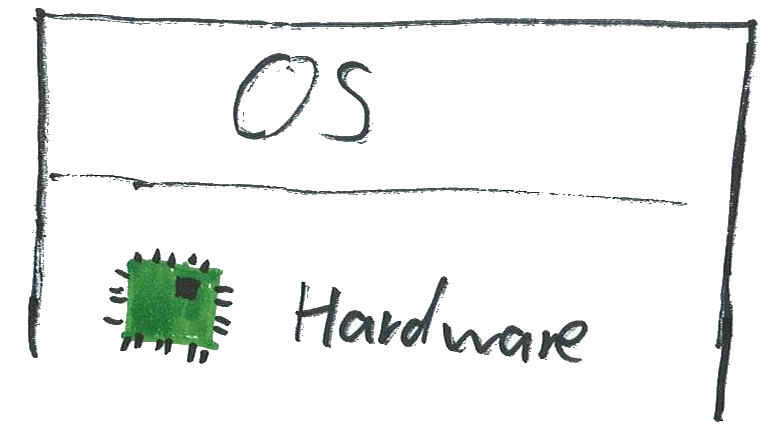 OS
Hardware